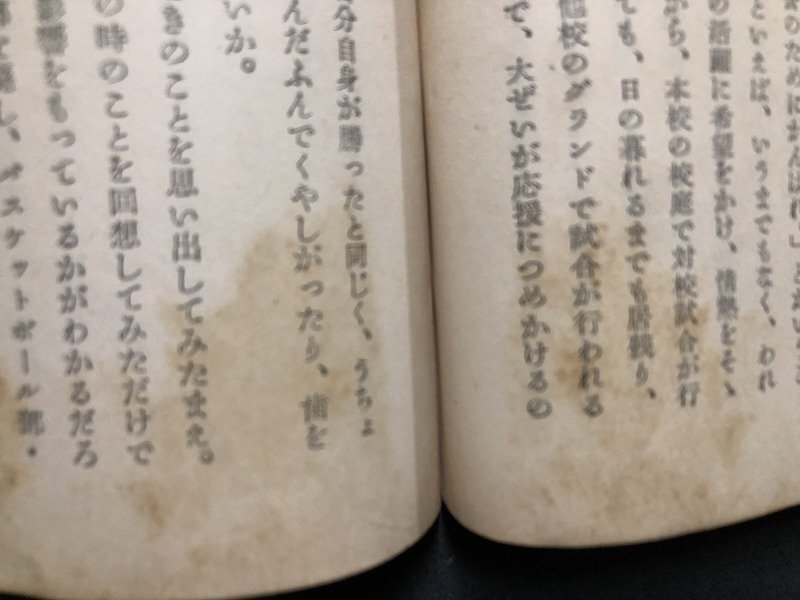 といえば、いうまでもなく、われ
の活躍に希望をかけ、情熱をそゝ
から、本校の校庭で対校試合が行
ても、日の暮れるまでも居残り、
他校のグランドで試合が行われる
で、大ぜいが応援につめかけるの
分自身が勝ったと同じく、うちょ
んだふんでくやしがったり、歯を
いか。
きのことを思い出してみたまえ。
の時のことを回想してみただけで
影響をもっているかがわかるだろ
し、バスケットボール部・